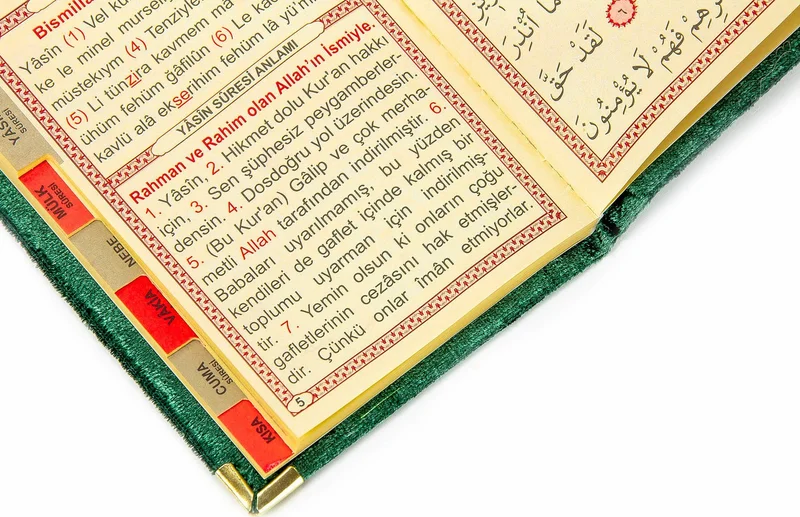 Bismilla
Yâsîn (1) Vel ku
ke le minel mursel
müstekıym (4) Tenziyle
(5) Li tünzira kavmem mâ
ühüm fehüm ğâfilûn (6) Le ka
kavlü alâ ekserihim fehüm lâ yü'm
YÂSÎN SÛRESİ ANLAMI
Rahman ve Rahim olan Allah'ın İsmiyle.
1. Yâsîn, 2. Hikmet dolu Kur'an hakkı
için, 3. Sen şüphesiz peygamberler-
densin. 4. Dosdoğru yol üzerindesin.
5. (Bu Kur'an) Gâlip ve çok merha-
metli Allah tarafından indirilmiştir. 6.
Babaları uyarılmamış, bu yüzden
kendileri de gaflet içinde kalmış bir
toplumu uyarman için indirilmiş-
tir. 7. Yemin olsun ki onların çoğu
gafletlerinin cezâsını hak etmişler-
dir. Çünkü onlar îmân etmiyorlar.
5
YÂSÎ
SÛRESİ
MÜLK
SÛRESİ
NEBE
VAKIA
CUMA
SÛRESİ
KISA
مَّا اُنْذِرَ
٦ لَقَدْ حَقَّ
فَهُمْ لَا يُؤْمِنُونَ